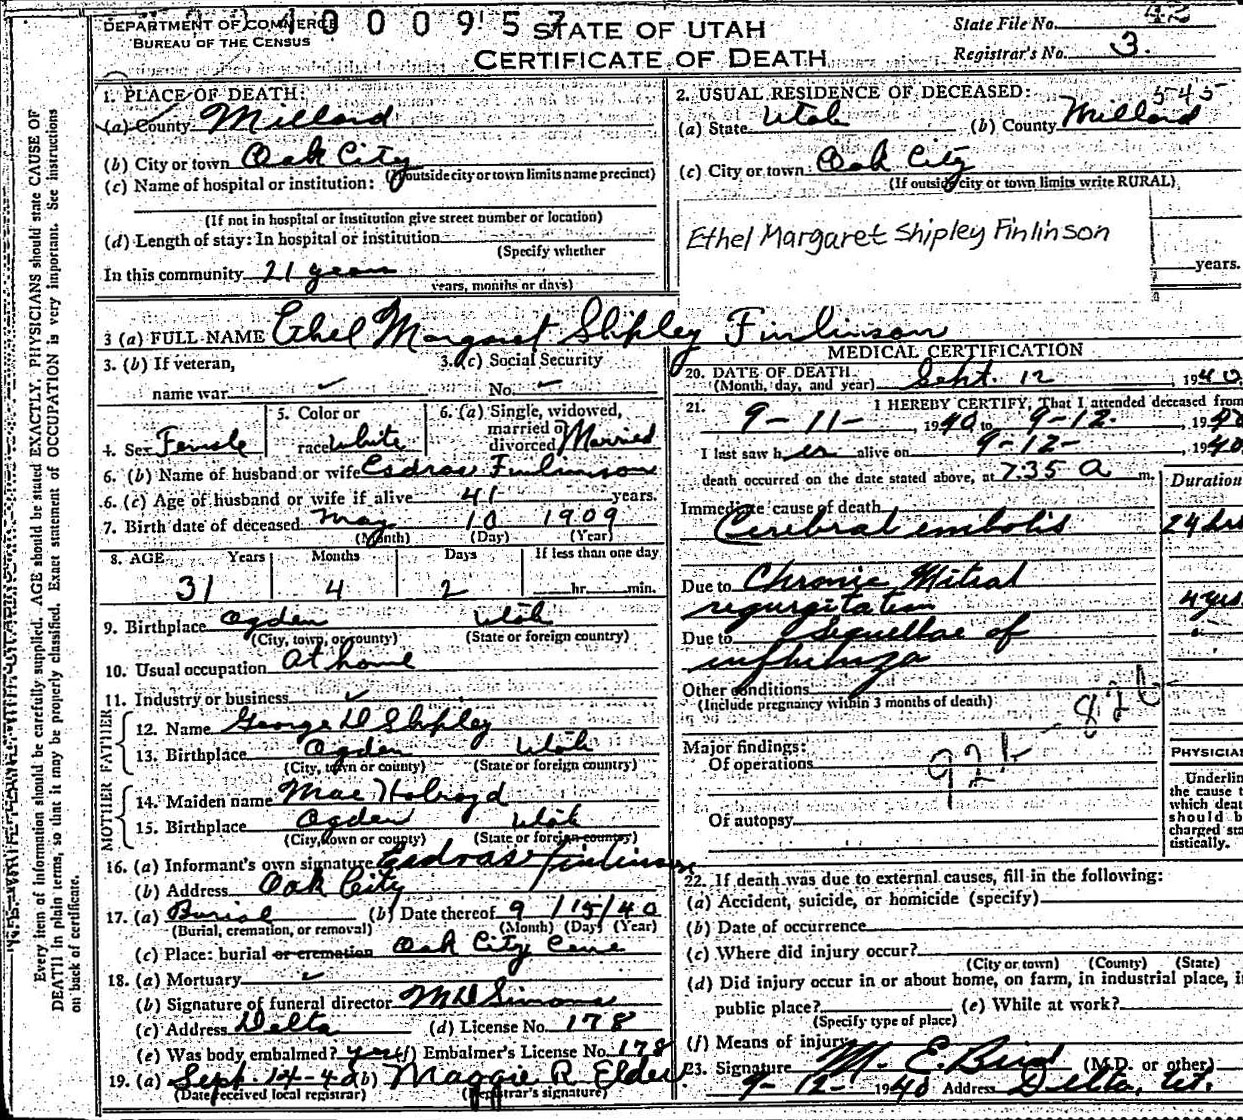 DEPARTMENT OF COMMERCE
BUREAU OF THE CENSUS
1 0 0 0 9 5 7
STATE OF UTAH
CERTIFICATE OF DEATH
State File No. 42
Registrar's No. 3.
Every item of information should be carefully supplied. AGE should be stated EXACTLY. PHYSICIANS should state CAUSE OF
DEATH in plain terms, so that it may be properly classified. Exact statement of OCCUPATION is very important. See instructions
on back of certificate.
1. PLACE OF DEATH:
(a) County Millard
(b) City or town Oak City
(If outside city or town limits name precinct)
(c) Name of hospital or institution:
(If not in hospital or institution give street number or location)
(d) Length of stay: In hospital or institution
(Specify whether
In this community 21 years
years, months or days)
2. USUAL RESIDENCE OF DECEASED: 545
(a) State Utah (b) County Millard
(c) City or town Oak City
(If outside city or town limits write RURAL)
Ethel Margaret Shipley Finlinson
years.
3 (a) FULL NAME Ethel Margaret Shipley Finlinson
3. (b) If veteran,
name war
3. (c) Social Security
No.
4. Sex Female
5. Color or
race White
6. (a) Single, widowed,
married or
divorced Married
6. (b) Name of husband or wife Esdras Finlinson
6. (c) Age of husband or wife if alive 41 years.
7. Birth date of deceased May 10 1909
(Month) (Day) (Year)
8. AGE Years Months Days If less than one day
31 4 2 hr. min.
9. Birthplace Ogden Utah
(City, town, or county) (State or foreign country)
10. Usual occupation At home
11. Industry or business
FATHER
12. Name George D Shipley
13. Birthplace Ogden Utah
(City, town or county) (State or foreign country)
MOTHER
14. Maiden name Mae Holroyd
15. Birthplace Ogden Utah
(City, town or county) (State or foreign country)
16. (a) Informant's own signature Esdras Finlinson
(b) Address Oak City
17. (a) Burial (b) Date thereof 9 / 15 / 40
(Burial, cremation, or removal) (Month) (Day) (Year)
(c) Place: burial or cremation Oak City Cem
18. (a) Mortuary
(b) Signature of funeral director M D Simons
(c) Address Delta (d) License No. 178
(e) Was body embalmed? yes (f) Embalmer's License No. 178
19. (a) Sept-14-40 (b) Maggie R. Elder
(Date received local registrar) (Registrar's signature)
MEDICAL CERTIFICATION
20. DATE OF DEATH
(Month, day, and year) Sept. 12, 1940
21. I HEREBY CERTIFY, That I attended deceased from
9-11-, 1940 to 9-12-, 1940
I last saw her alive on 9-12-, 1940
death occurred on the date stated above, at 7.35 a m.
Duration
Immediate cause of death
Cerebral embolis 24 hrs
Due to Chronic Mitral
regurgitation 4 yrs.
Due to Sequellae of
influenza
Other conditions
(Include pregnancy within 3 months of death)
Major findings:
Of operations
Of autopsy
PHYSICIAN
Underline
the cause t
which deat
should b
charged sta
tistically.
22. If death was due to external causes, fill in the following:
(a) Accident, suicide, or homicide (specify)
(b) Date of occurrence
(c) Where did injury occur?
(City or town) (County) (State)
(d) Did injury occur in or about home, on farm, in industrial place, i
public place? (e) While at work?
(Specify type of place)
(f) Means of injury
23. Signature M. E. Bird (M.D. or other)
9-12-1940 Address Delta, Ut.